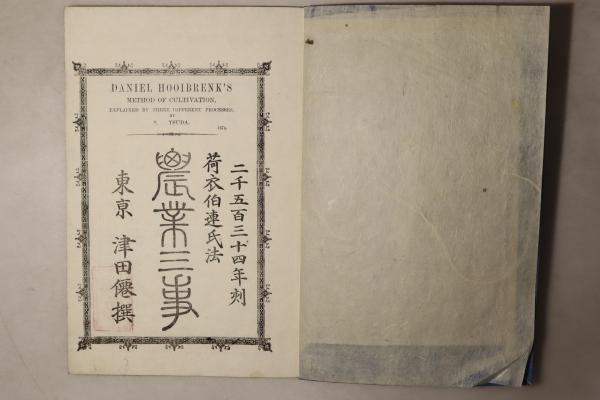 DANIEL HOOIBRENK'S
METHOD OF CULTIVATION,
EXPLAINED BY THREE DIFFERENT PROCESSES,
BY
S. TSUDA,
1874.
二千五百三十四年刻
荷衣伯連氏法
農業三事
東京 津田僊撰